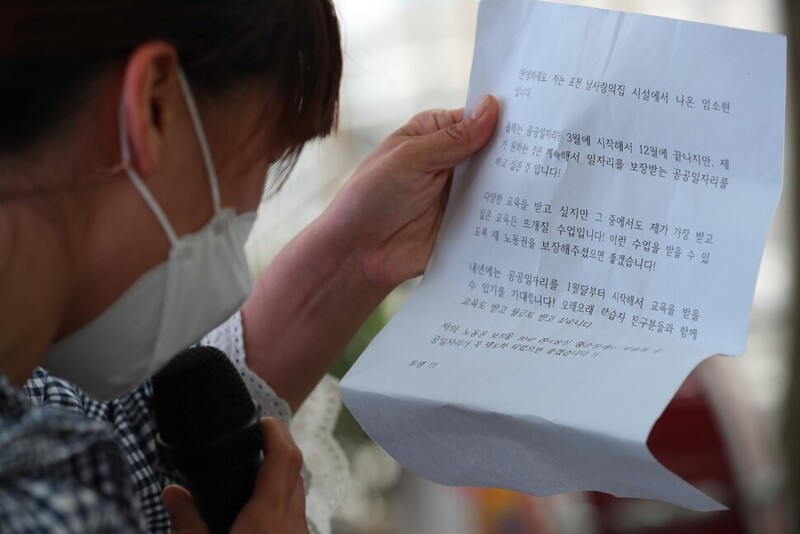 안녕하세요. 저는 포천 남사랑의집 시설에서 나온 엄소현
입니다.
올해는 공공일자리가 3월에 시작해서 12월에 끝나지만, 제
가 원하는 것은 계속해서 일자리를 보장받는 공공일자리를
하고 싶은 것 입니다!
다양한 교육을 받고 싶지만 그 중에서도 제가 가장 받고
싶은 교육은 뜨개질 수업입니다! 이런 수업을 받을 수 있
도록 제 노동권을 보장해주셨으면 좋겠습니다!
내년에는 공공일자리를 1월달부터 시작해서 교육을 받을
수 있기를 기대합니다! 오래오래 학습자 친구분들과 함께
교육도 받고 월급도 받고 싶습니다
저의 노동권 보장을
공일자리가 꼭 제도화 되었으면 좋겠습니다 !!
투쟁 !!!